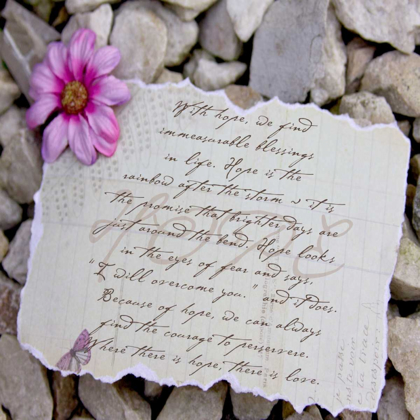 With hope, we find
immeasurable blessings
in life. Hope is the
rainbow after the storm & it is
the promise that brighter days are
just around the bend. Hope looks
in the eyes of fear and says,
"I will overcome you." and it does.
Because of hope, we can always
find the courage to persevere.
Where there is hope, there is love.
hope